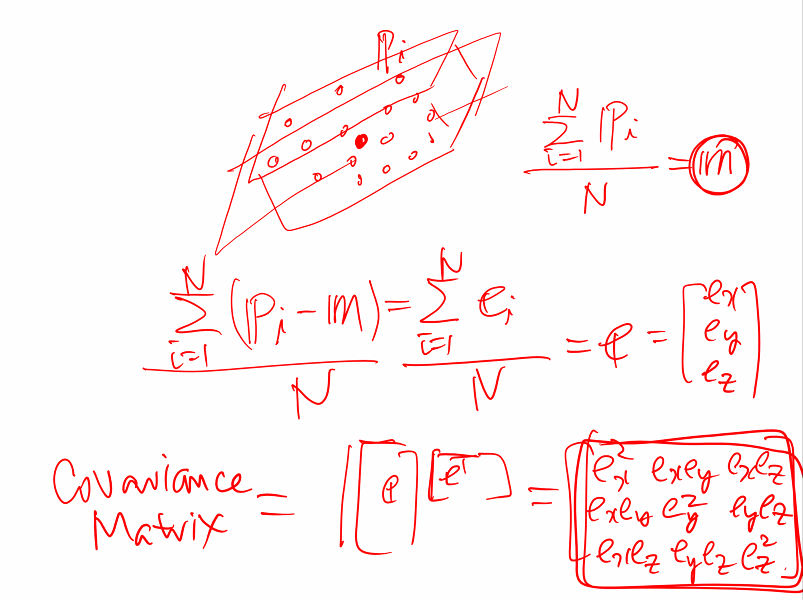 ℙi
N
∑ ℙi
i=1
N
= 𝕞
N N
∑ (ℙi - 𝕞) = ∑ ei
i=1 i=1
N N
= e = [ex ey ez]
Covariance Matrix = [e] [eᵀ] =
ex² exey exez
exey ey² eyez
exez eyez ez²